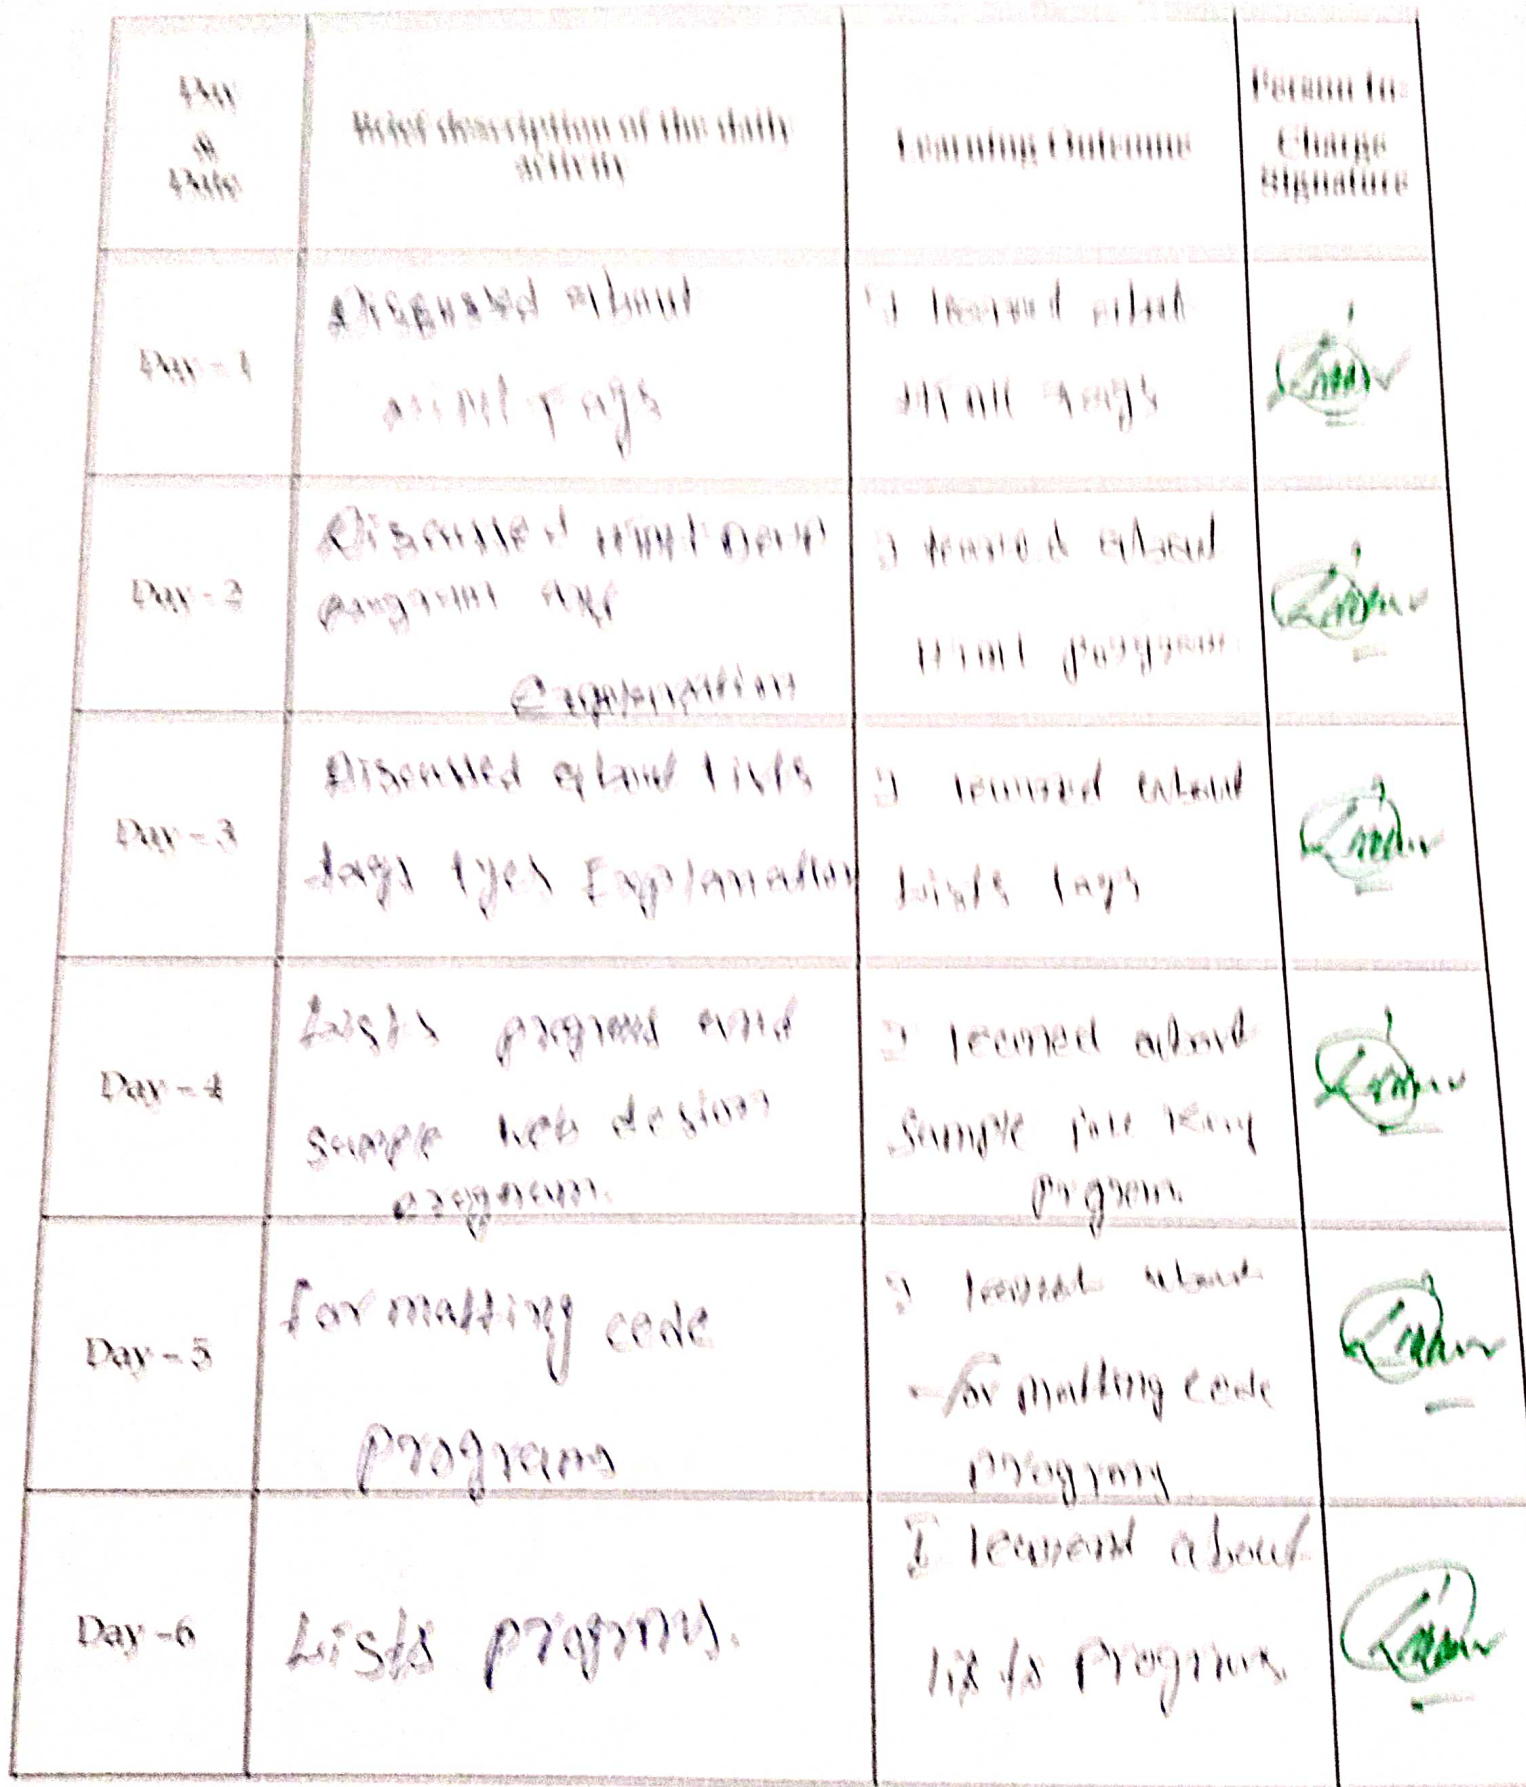 Day
&
Date
Brief description of the daily
activity
Learning Outcome
Person In-
Charge
Signature
Day - 1
Discussed about
Html tags
I learned about
Html tags
Day - 2
Discussed Html
program
Explanation
I learned about
Html program
Day - 3
Discussed about Lists
tags tyes Explanation
I learned about
Lists tags
Day - 4
Lists programs and
sample web design
program.
I learned about
sample
prgrem.
Day - 5
for matting code
programs
I learned about
for matting code
programs
Day - 6
Lists programs.
I learned about
lists programs.